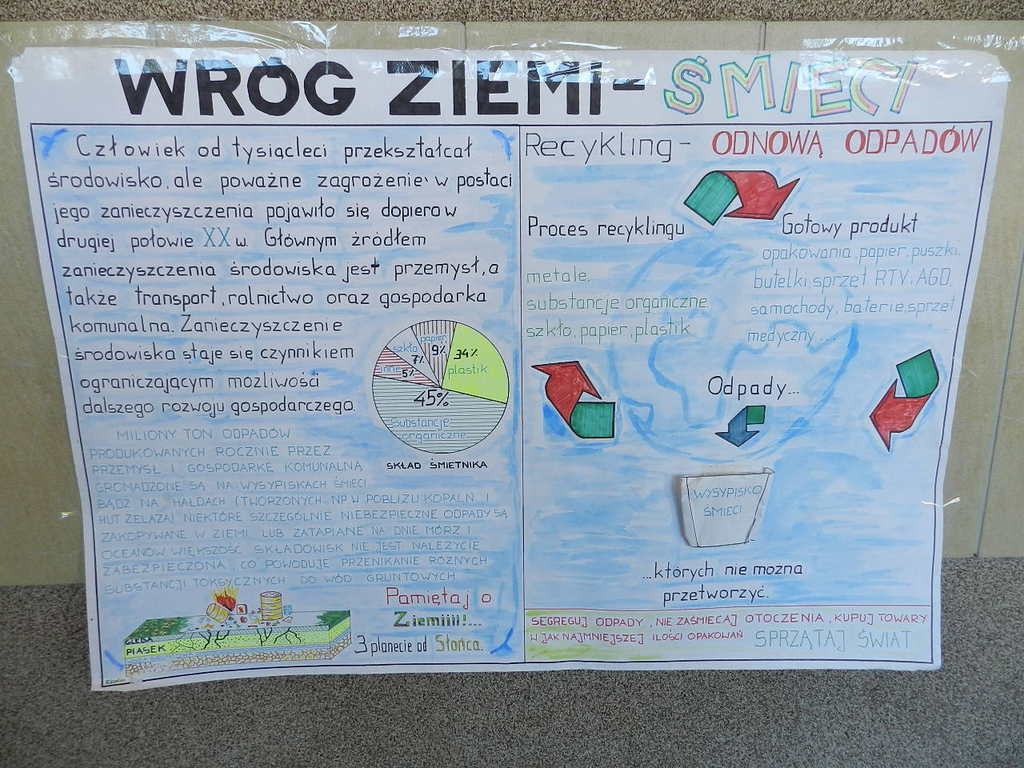 WRÓG ZIEMI - ŚMIECI
Człowiek od tysiącleci przekształcał
środowisko, ale poważne zagrożenie w postaci
jego zanieczyszczenia pojawiło się dopiero w
drugiej połowie XX w. Głównym źródłem
zanieczyszczenia środowiska jest przemysł, a
także transport, rolnictwo oraz gospodarka
komunalna. Zanieczyszczenie
środowiska staje się czynnikiem
ograniczającym możliwości
dalszego rozwoju gospodarczego.
papier
9%
szkło
7%
inne
5%
34%
plastik
45%
Substancje
organiczne
SKŁAD ŚMIETNIKA
MILIONY TON ODPADÓW
PRODUKOWANYCH ROCZNIE PRZEZ
PRZEMYSŁ I GOSPODARKĘ KOMUNALNA
GROMADZONE SĄ NA WYSYPISKACH ŚMIECI
BĄDŹ NA HAŁDACH (TWORZONYCH NP. W POBLIŻU KOPALŃ I
HUT ŻELAZA) NIEKTÓRE SZCZEGÓLNIE NIEBEZPIECZNE ODPADY SĄ
ZAKOPYWANE W ZIEMI LUB ZATAPIANE NA DNIE MÓRZ I
OCEANÓW WIĘKSZOŚĆ SKŁADOWISK NIE JEST NALEŻYCIE
ZABEZPIECZONA, CO POWODUJE PRZENIKANIE RÓŻNYCH
SUBSTANCJI TOKSYCZNYCH DO WÓD GRUNTOWYCH
GLEBA
PIASEK
Pamiętaj o
Ziemiiii!...
3 planecie od Słońca.
Recykling - ODNOWĄ ODPADÓW
Proces recyklingu
metale,
substancje organiczne,
szkło, papier, plastik
Gotowy produkt
opakowania, papier, puszki,
butelki, sprzęt RTV i AGD,
samochody, baterie, sprzęt
medyczny...
Odpady...
WYSYPISKO
ŚMIECI
...których nie można
przetworzyć.
SEGREGUJ ODPADY, NIE ZAŚMIECAJ OTOCZENIA, KUPUJ TOWARY
W JAK NAJMNIEJSZEJ ILOŚCI OPAKOWAŃ SPRZĄTAJ ŚWIAT